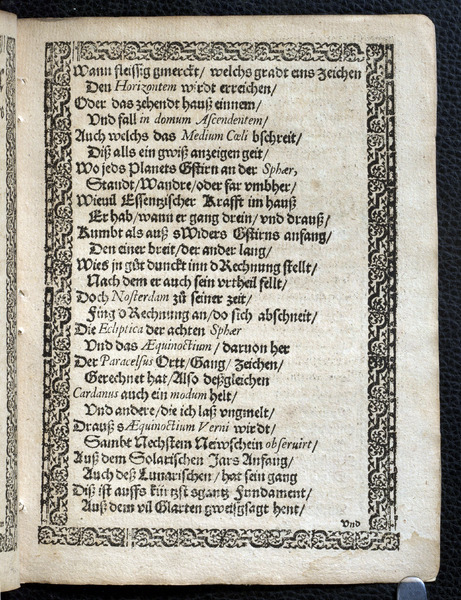 Wann fleissig gmerckt/ welchs gradt eins Zeichen
Den Horizontem wirdt erreichen/
Oder das zehendt hauß einnem/
Vnd fall in domum Ascendentem/
Auch welchs das Medium Cœli bschreit/
Diß alls ein gwiß anzeigen geit/
Wo jeds Planets Gstirn an der Sphær,
Standt/ Wandre/ oder far vmbher/
Wieuil Essentzischer Krafft im hauß
Er hab/ wann er gang drein/ vnd drauß/
Kumbt als auß sWiders Gstirns anfang/
Den einer breit/ der ander lang/
Wies jn gůt dunckt inn d Rechnung stellt/
Nach dem er auch sein vrtheil fellt/
Doch Nosterdam zů seiner zeit/
Fing d Rechnung an/ do sich abschneit/
Die Ecliptica der achten Sphær
Vnd das Æquinoctium/ daruon her
Der Paracelsus Ortt/ Gang/ Zeichen/
Gerechnet hat/ Also deßgleichen
Cardanus auch ein modum helt/
Vnd andere/ die ich laß vngmelt/
Drauß s Æquinoctium Verni wirdt/
Sambt Nechstem Newschein obseruirt/
Auß dem Solarischen Jars Anfang/
Auch deß Lunarischen/ hat sein gang
Diß ist auffs kürtzst sgantz Fundament/
Auß dem vil Glarten gweissgsagt hent/
Vnd